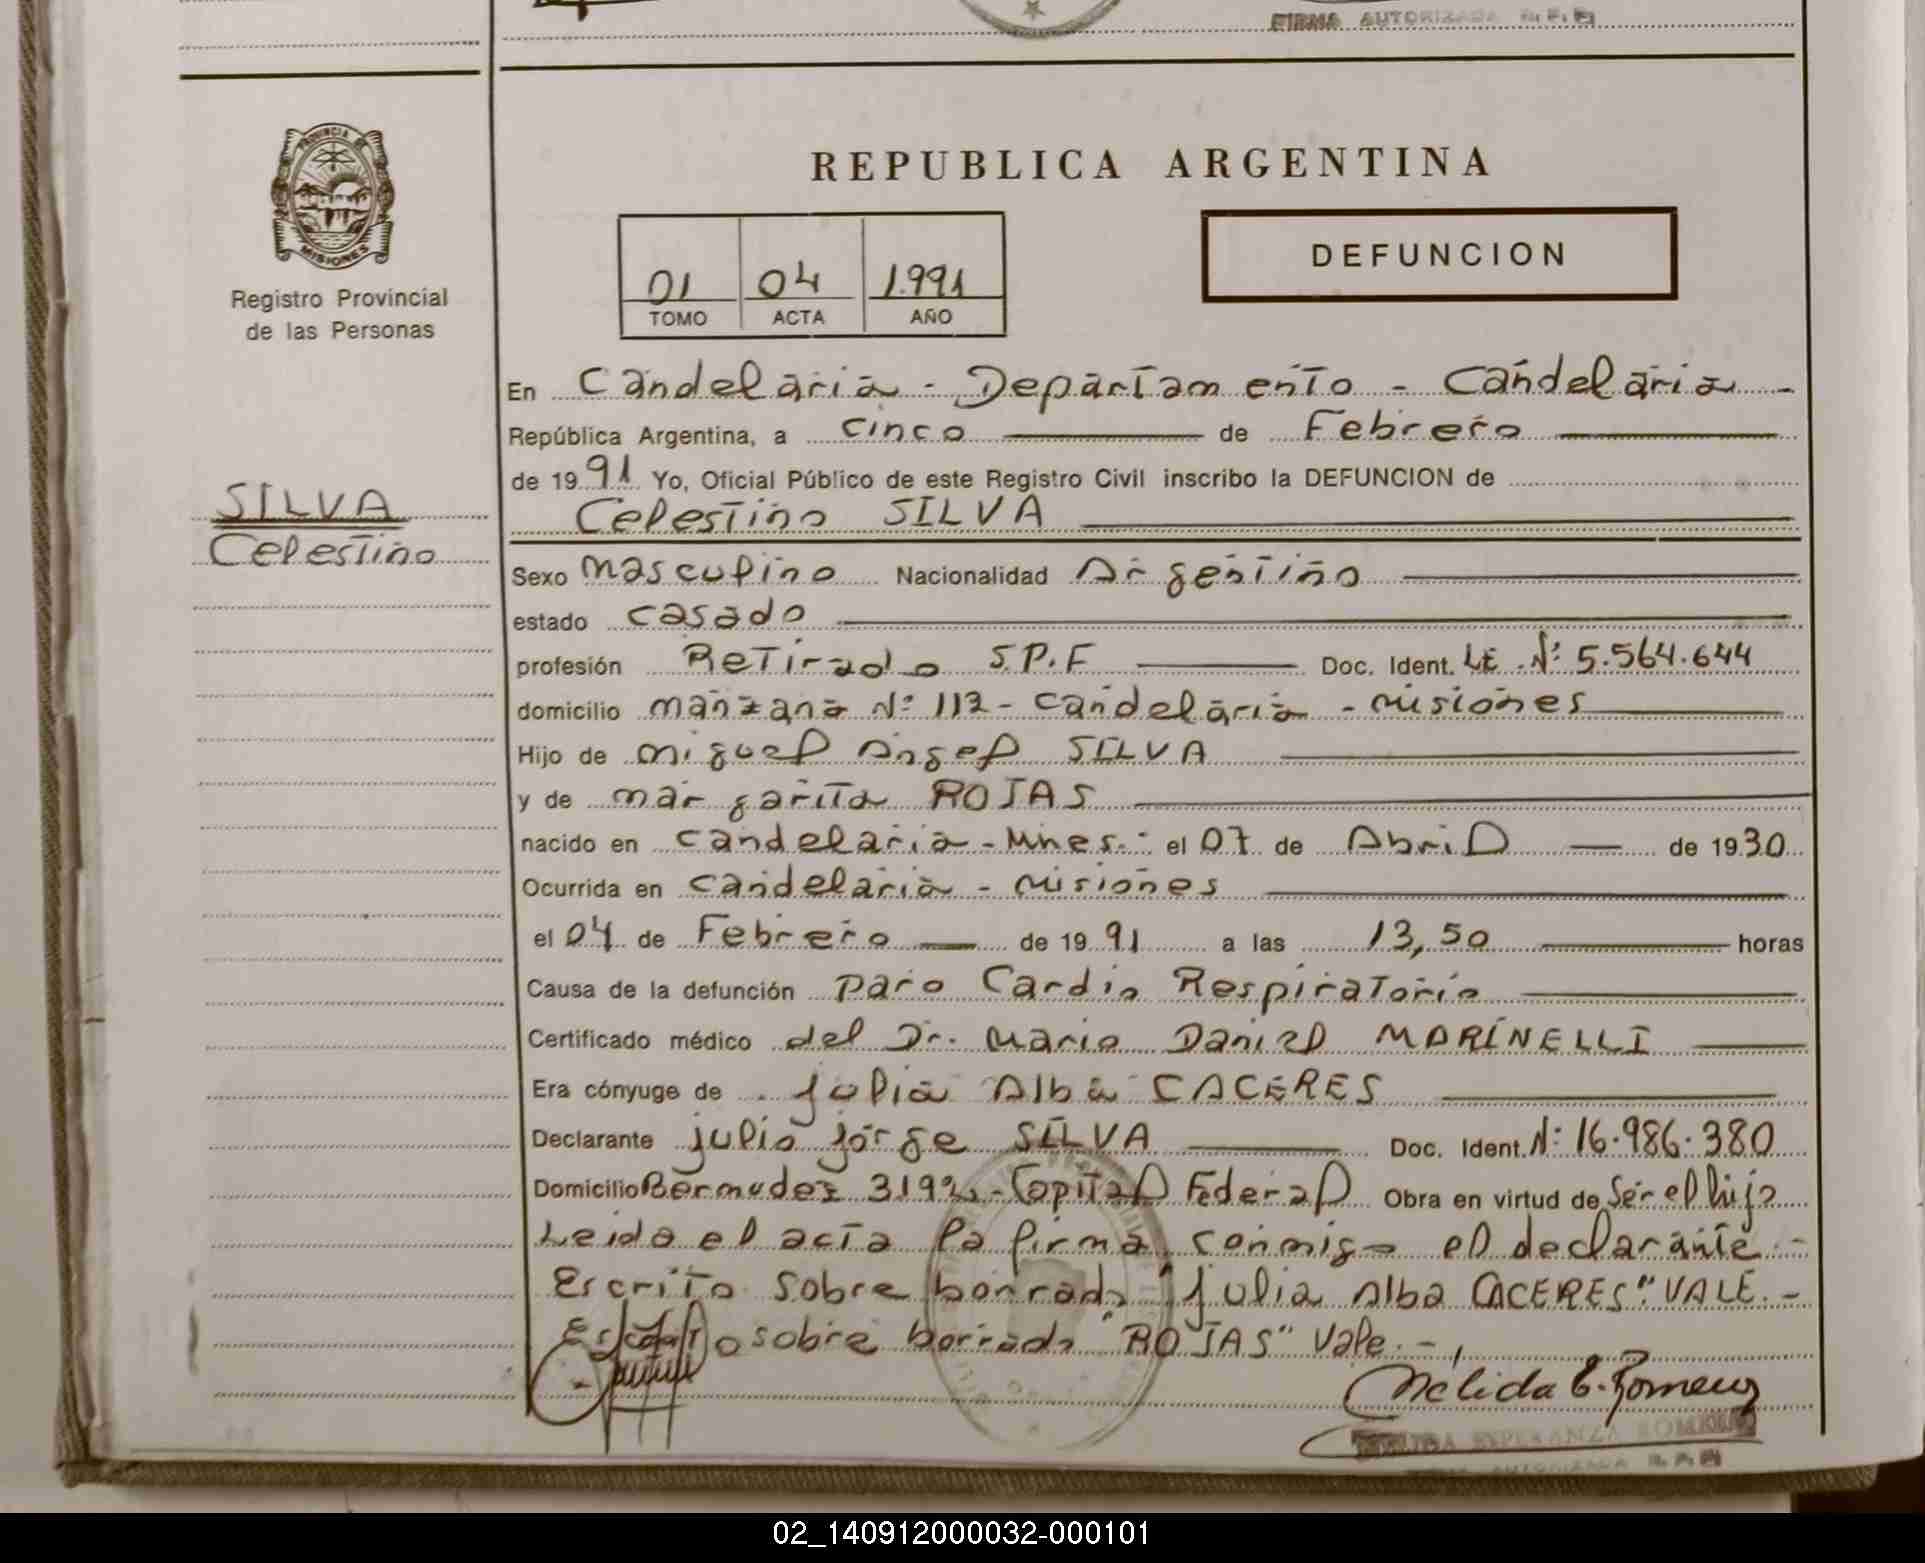 FIRMA AUTORIZADA R.P.P.
PROVINCIA DE
MISIONES
Registro Provincial
de las Personas
SILVA
Celestino
REPUBLICA ARGENTINA
01 04 1.991
TOMO ACTA AÑO
DEFUNCION
En Candelaria - Departamento - Candelaria -
República Argentina, a cinco de Febrero
de 1991 Yo, Oficial Público de este Registro Civil inscribo la DEFUNCION de
Celestino SILVA
Sexo masculino Nacionalidad Argentino
estado casado
profesión Retirado S.P.F Doc. Ident. LE Nº 5.564.644
domicilio manzana Nº 112 - Candelaria - misiones
Hijo de miguel Angel SILVA
y de margarita ROJAS
nacido en candelaria - Mnes. el 07 de Abril de 1930
Ocurrida en candelaria - misiones
el 04 de Febrero de 1991 a las 13,50 horas
Causa de la defunción paro Cardio Respiratorio
Certificado médico del Dr. Mario Daniel MARINELLI
Era cónyuge de Julia Alba CACERES
Declarante julio jorge SILVA Doc. Ident. Nº 16.986.380
Domicilio Bermudez - Capital Federal Obra en virtud de Ser el hijo
Leida el acta la firma conmigo el declarante -
Escrito sobre borrado "Julia Alba CACERES" VALE. -
sobre borrado "ROJAS" Vale. -
Nelida E. Romero
ESPERANZA ROMERO
02_140912000032-000101